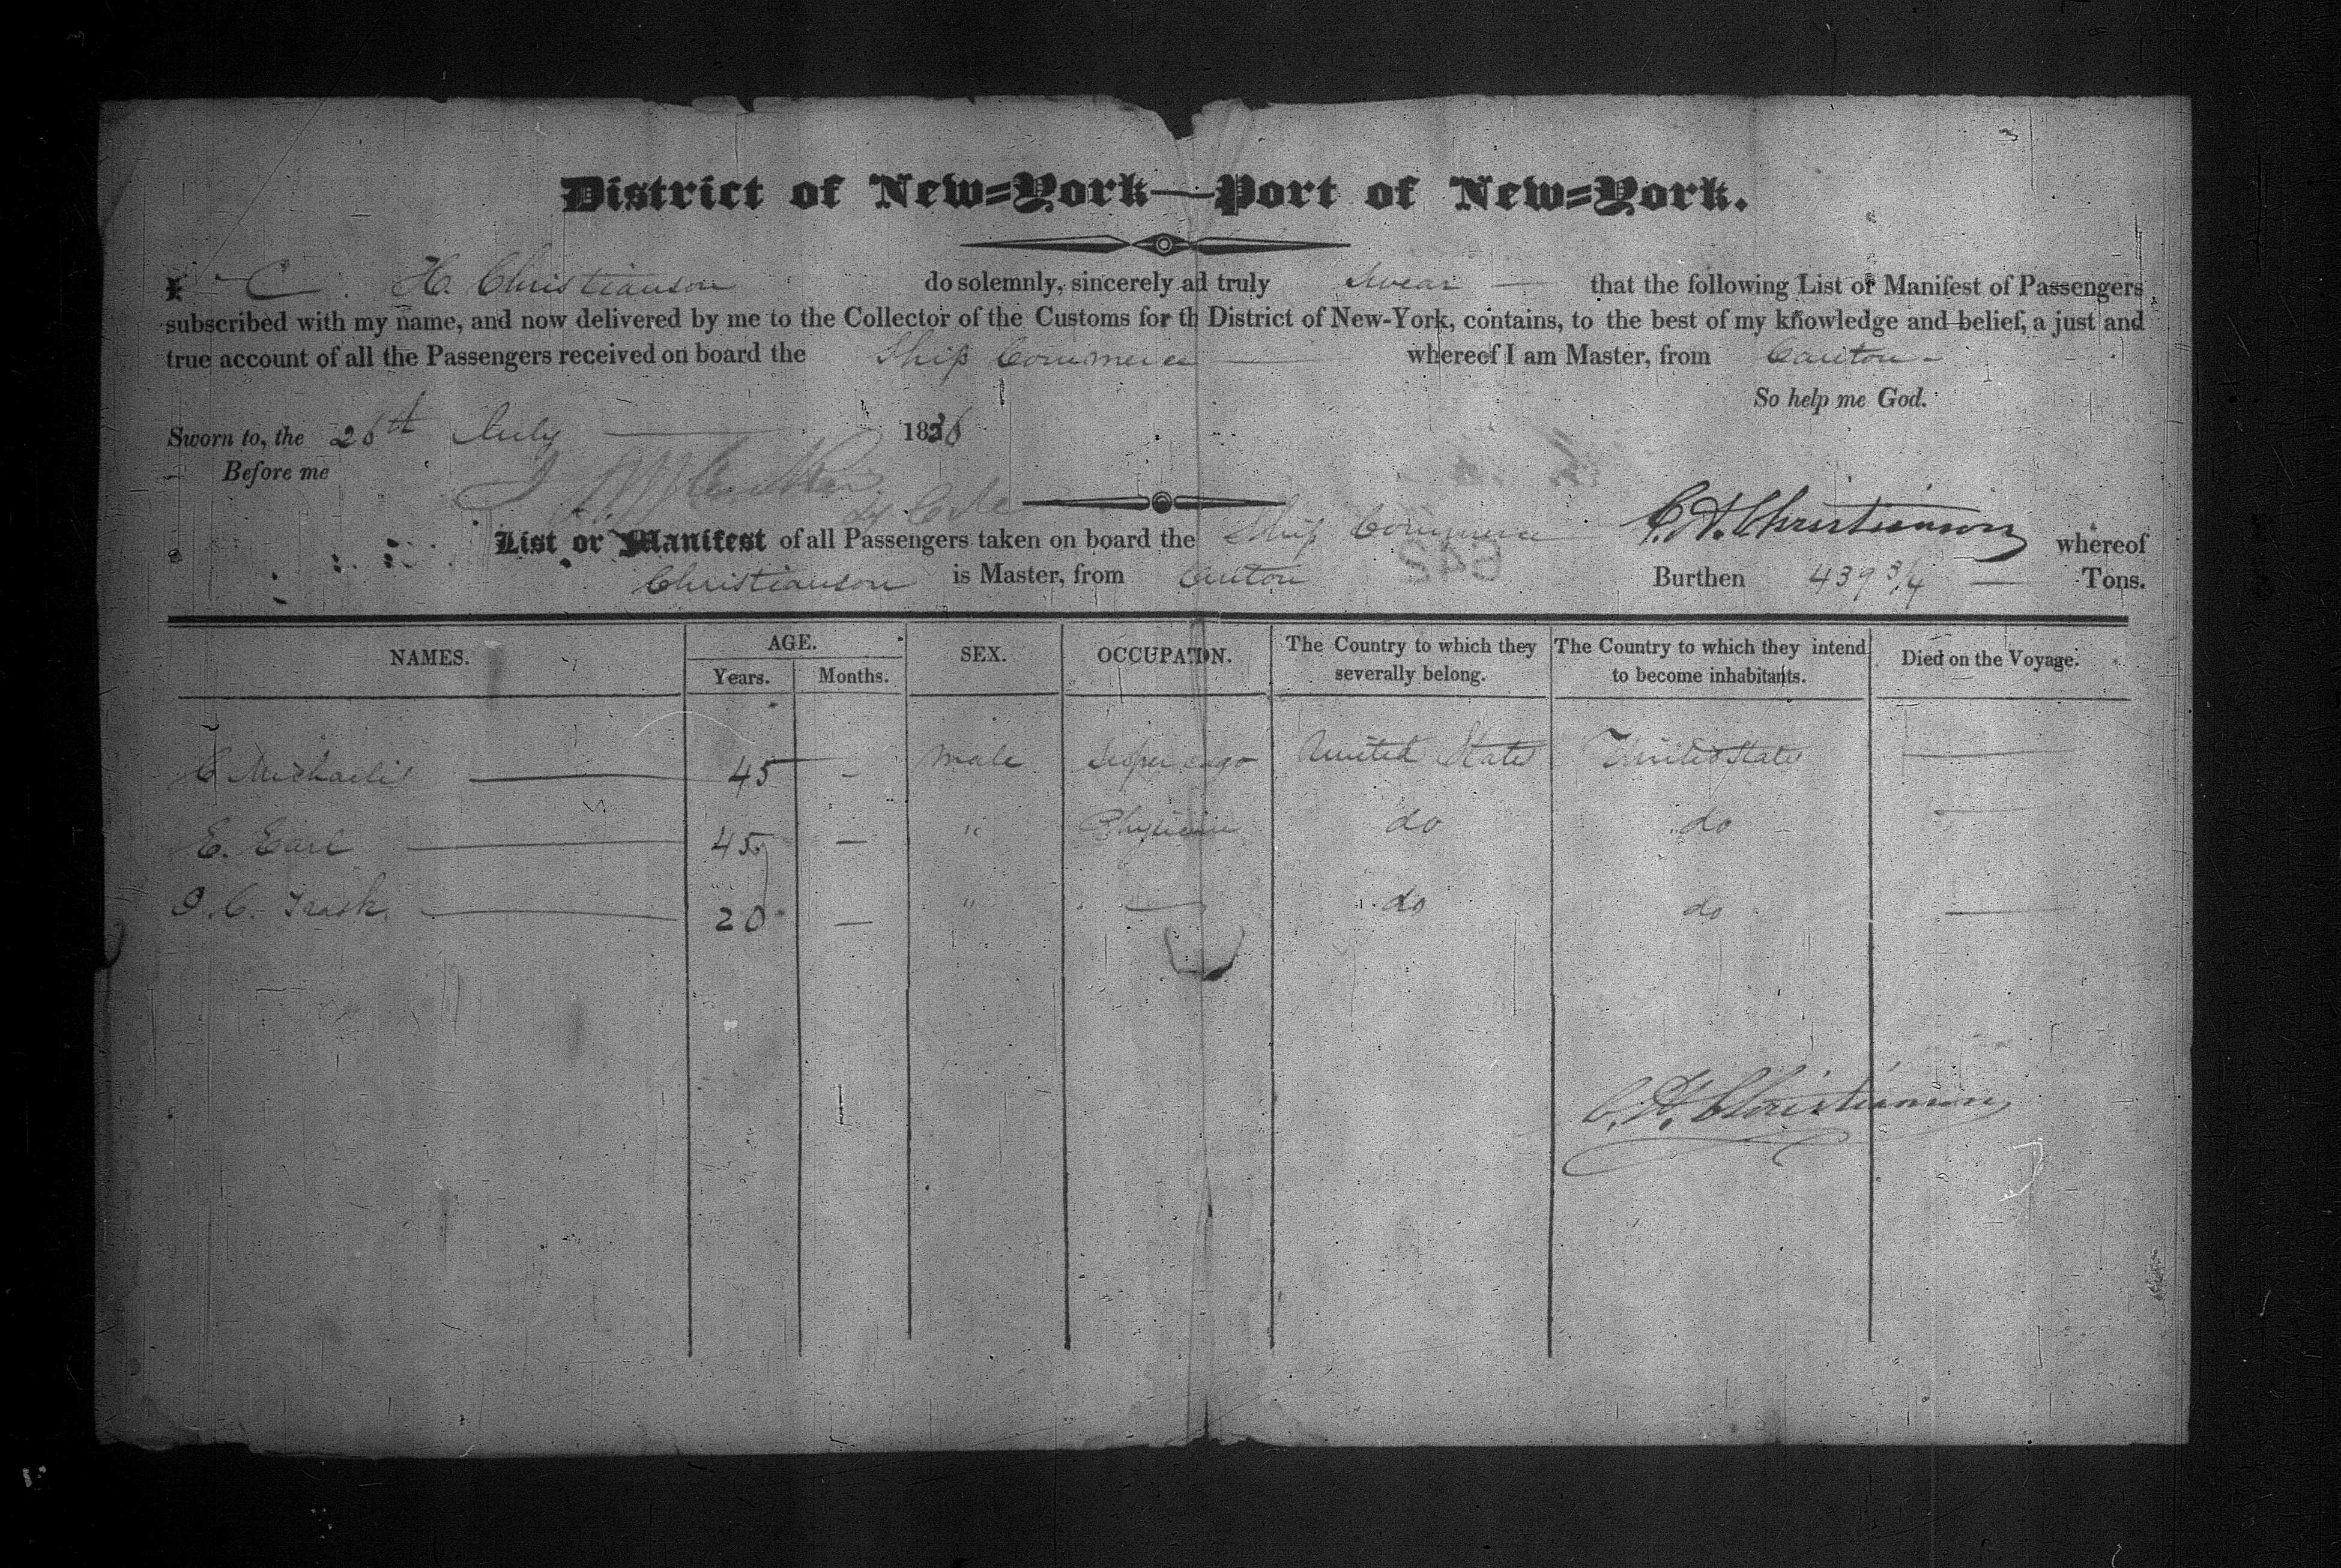 District of New=York—Port of New=York.
I C. H. Christianson do solemnly, sincerely ad truly swear that the following List or Manifest of Passengers
subscribed with my name, and now delivered by me to the Collector of the Customs for th District of New-York, contains, to the best of my knowledge and belief, a just and
true account of all the Passengers received on board the Ship Commerce whereof I am Master, from Canton
So help me God.
Sworn to, the 26th July 1836
Before me
C. H. Christianson
List or Manifest of all Passengers taken on board the Ship Commerce whereof
Christianson is Master, from Canton Burthen 439 3/4 Tons.
NAMES. AGE. SEX. OCCUPATIN. The Country to which they severally belong. The Country to which they intend to become inhabitants. Died on the Voyage.
Years. Months.
C Michaelis 45 - male Supercargo United States United States
E. Earl 45 — " Physician do do
C. Trask 20 — " — do do
C. H. Christianson